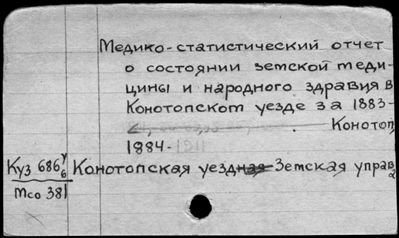 Медико-статистический отчет
о состоянии земской меди-
цины и народного здравия в
Конотопском уезде за 1883-
Конотоп,
1884.
Куз 686 Конотопская уездная Земская управа
Мсо 381